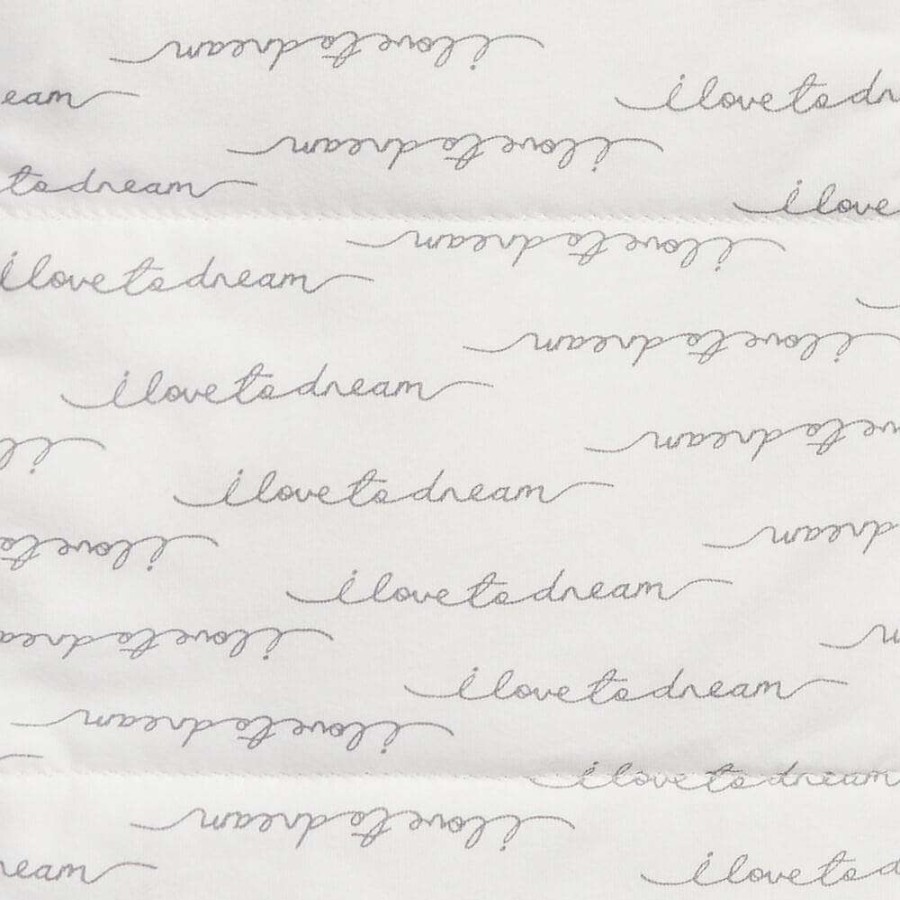 i love to dream
eam
i love to dr
i love to dream
to dream
i love
i love to dream
i love to dream
i love to dream
i love to dream
ve to dream
i l
i love to dream
i love to
dream
i love to dream
i love to drea
m
i love to dream
i love to dream
i love to dream
i love to dream
ream
i love to d